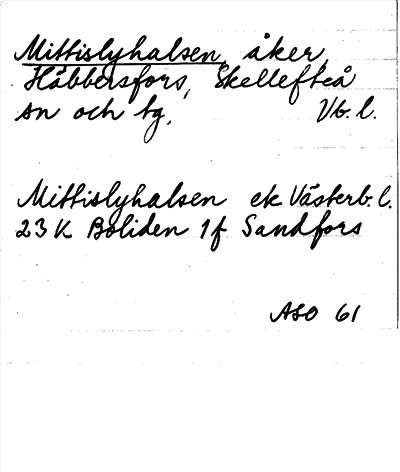 Mittislyhalsen, åker,
Häbbersfors, Skellefteå
sn och tg, Vb. l.
Mittislyhalsen ek Västerb. l.
23 K Boliden 1f Sandfors
ASO 61